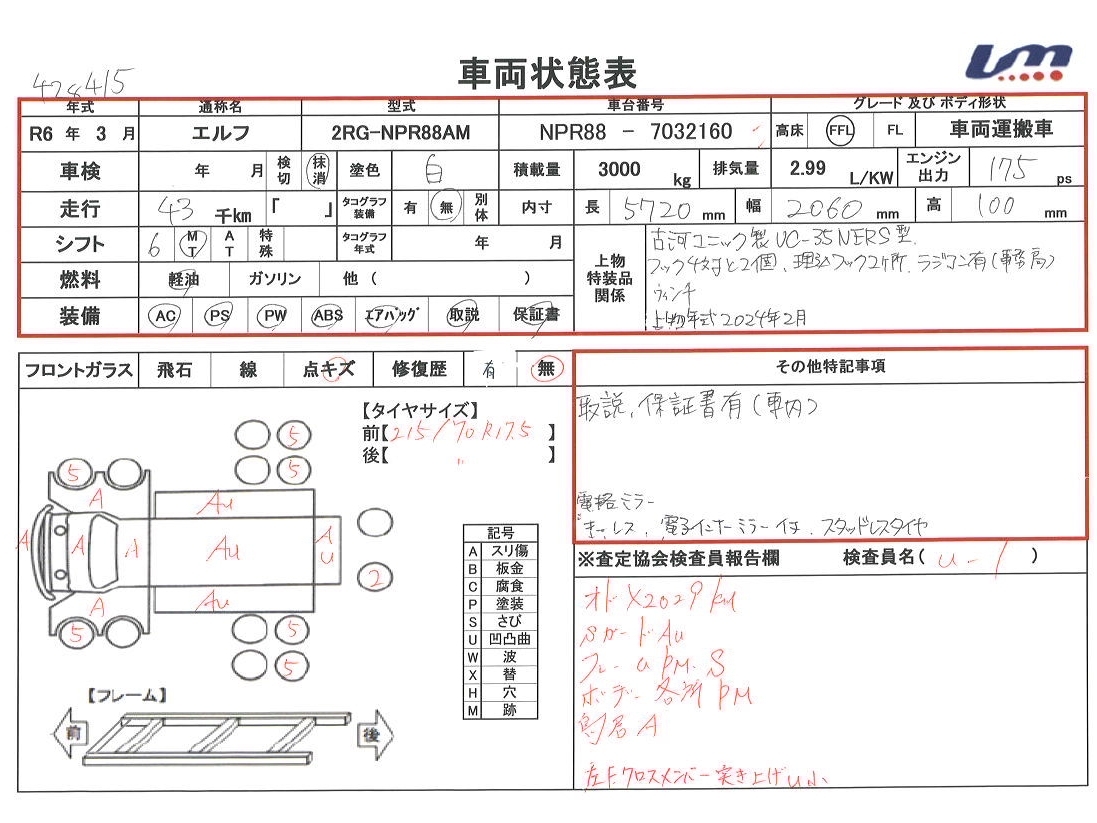 478415
車両状態表
年式 通称名 型式 車台番号 グレード 及び ボディ形状
R6 年 3 月 エルフ 2RG-NPR88AM NPR88 - 7032160 高床 FFL FL 車両運搬車
車検 年 月 検切 抹消 塗色 白 積載量 3000 kg 排気量 2.99 L/KW エンジン出力 175 ps
走行 43 千km 「 」 タコグラフ装備 有 無 別体 内寸 長 5720 mm 幅 2060 mm 高 100 mm
シフト 6 MT AT 特殊 タコグラフ年式 年 月
燃料 軽油 ガソリン 他 ( )
装備 AC PS PW ABS エアバッグ 取説 保証書
上物特装品関係
古河ユニック製 UC-35NERS型.
フック4対と2個、埋込フック2ヶ所、ラジコン有(事務局)
ウィンチ
上物年式2024年2月
フロントガラス 飛石 線 点キズ 修復歴 有 無
【タイヤサイズ】
前【215/70R17.5 】
後【 〃 】
5 5
5 5
A A A A A
Au Au Au Au
2
5 5
5
【フレーム】
前 後
記号
A スリ傷
B 板金
C 腐食
P 塗装
S さび
U 凹凸曲
W 波
X 替
H 穴
M 跡
その他特記事項
取説、保証書有(車内)
電格ミラー
キーレス、電子インナーミラー付、スタッドレスタイヤ
※査定協会検査員報告欄 検査員名( U-1 )
オドメ2029km
SガードAu
フレームPM.S
ボデー各所PM
鳥居A
左Fクロスメンバー突き上げU小